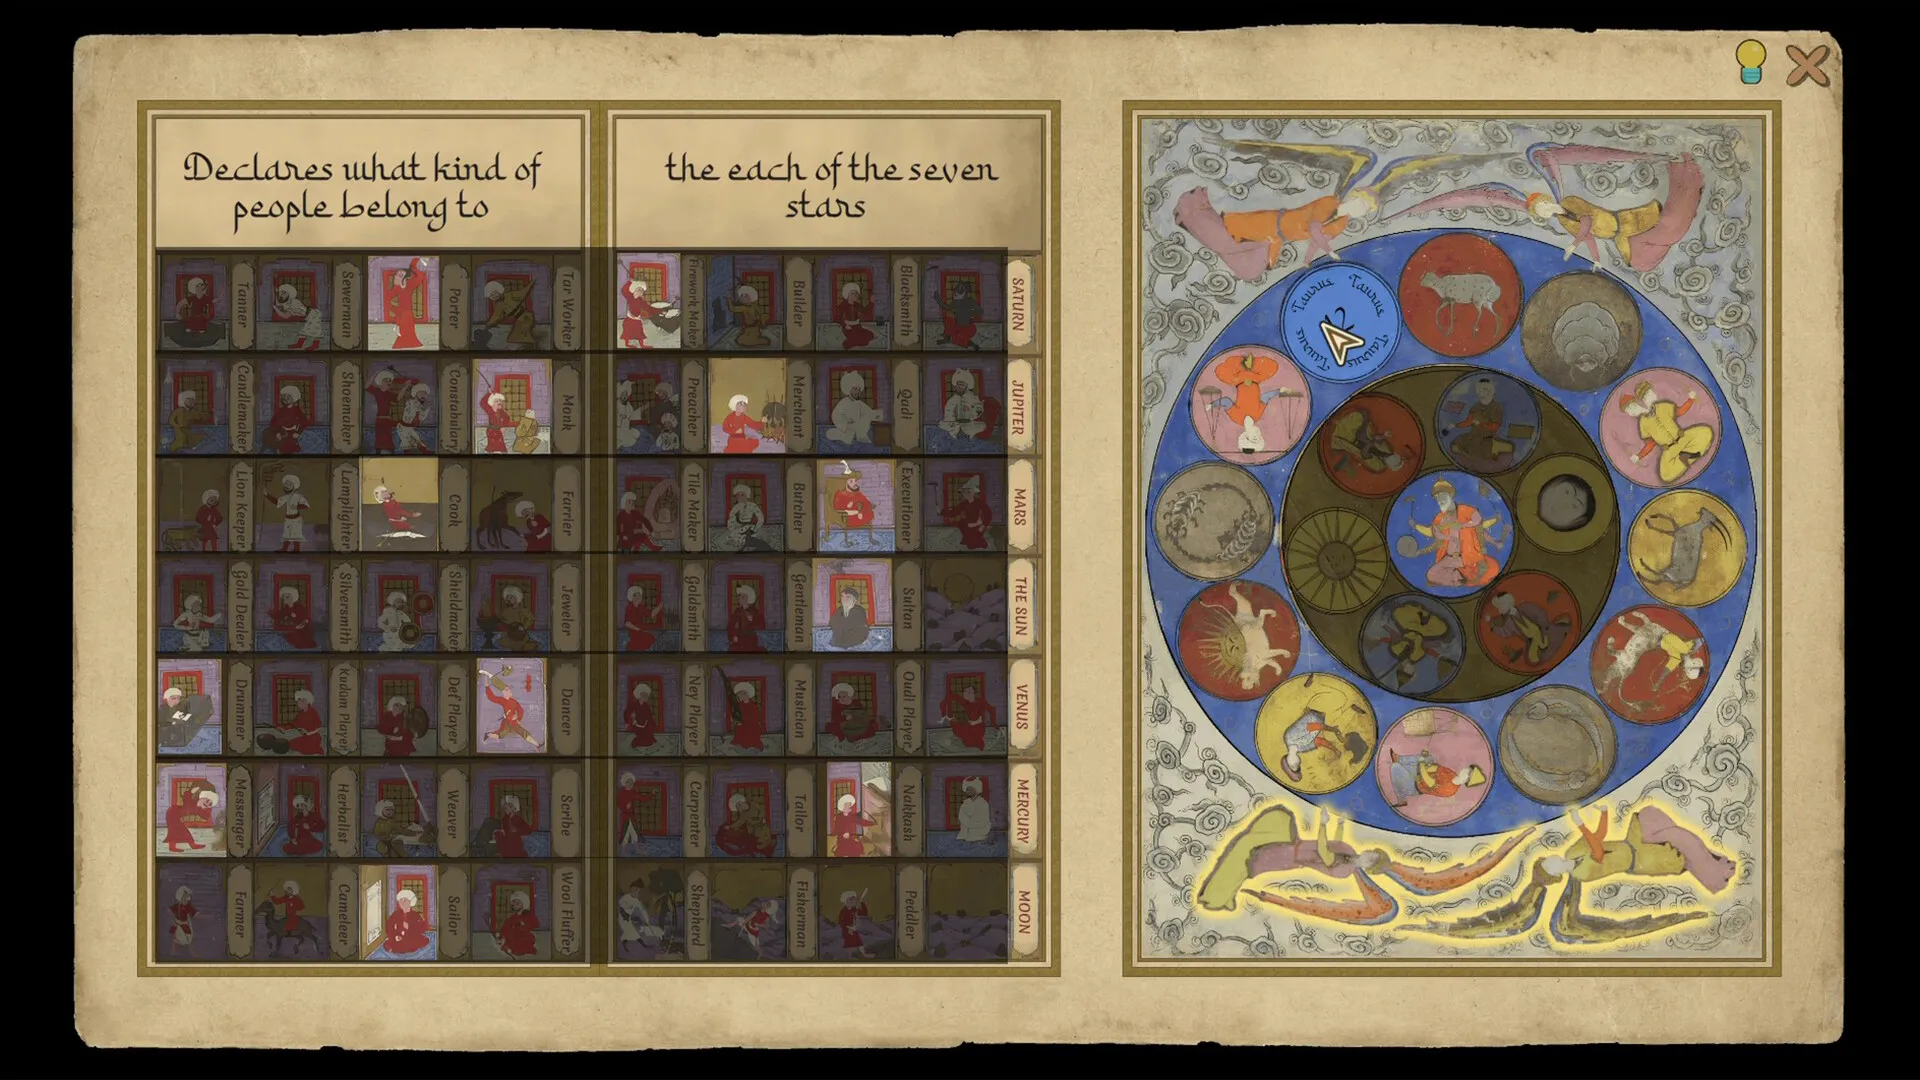 Declares what kind of
people belong to
the each of the seven
stars
Tanner
Sewerman
Porter
Tar Worker
Firework Maker
Builder
Blacksmith
SATURN
Candlemaker
Shoemaker
Constabulary
Monk
Preacher
Merchant
Qadi
JUPITER
Lion Keeper
Lamplighter
Cook
Farrier
Tile Maker
Butcher
Executioner
MARS
Gold Dealer
Silversmith
Shieldmaker
Jeweler
Goldsmith
Gentleman
Sultan
THE SUN
Drummer
Kudüm Player
Def Player
Dancer
Ney Player
Musician
Oud Player
VENUS
Messenger
Herbalist
Weaver
Scribe
Carpenter
Tailor
Nakkash
MERCURY
Farmer
Cameleer
Sailor
Wool Fluffer
Shepherd
Fisherman
Peddler
MOON
Taurus
Taurus
Taurus
Taurus
2